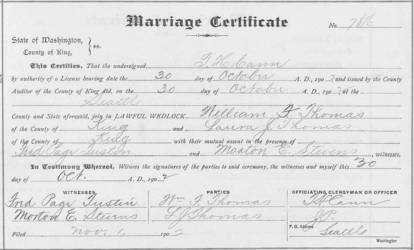 Marriage Certificate
No. 786
State of Washington, } ss.
County of King,
This Certifies, That the undersigned, T. H. Cann
by authority of a License bearing date the 30 day of October A. D., 190 2 and issued by the County
Auditor of the County of King did, on the 30 day of October A. D., 190 2 at the
Seattle
County and State aforesaid, join in LAWFUL WEDLOCK, William F Thomas
of the County of King and Laura J Thomas
of the County of King with their mutual assent in the presence of
Ford Page Tustin and Morton E. Stevens, witnesses.
In Testimony Whereof, Witness the signatures of the parties to said ceremony, the witnesses and myself this 30
day of Oct. A. D., 190 2
WITNESSES PARTIES OFFICIATING CLERGYMAN OR OFFICER
Ford Page Tustin Wm F Thomas T H Cann
Morton E. Stevens L J Thomas J.P.
Filed Nov. 1 190 2 P. O. Address Seattle
Washington